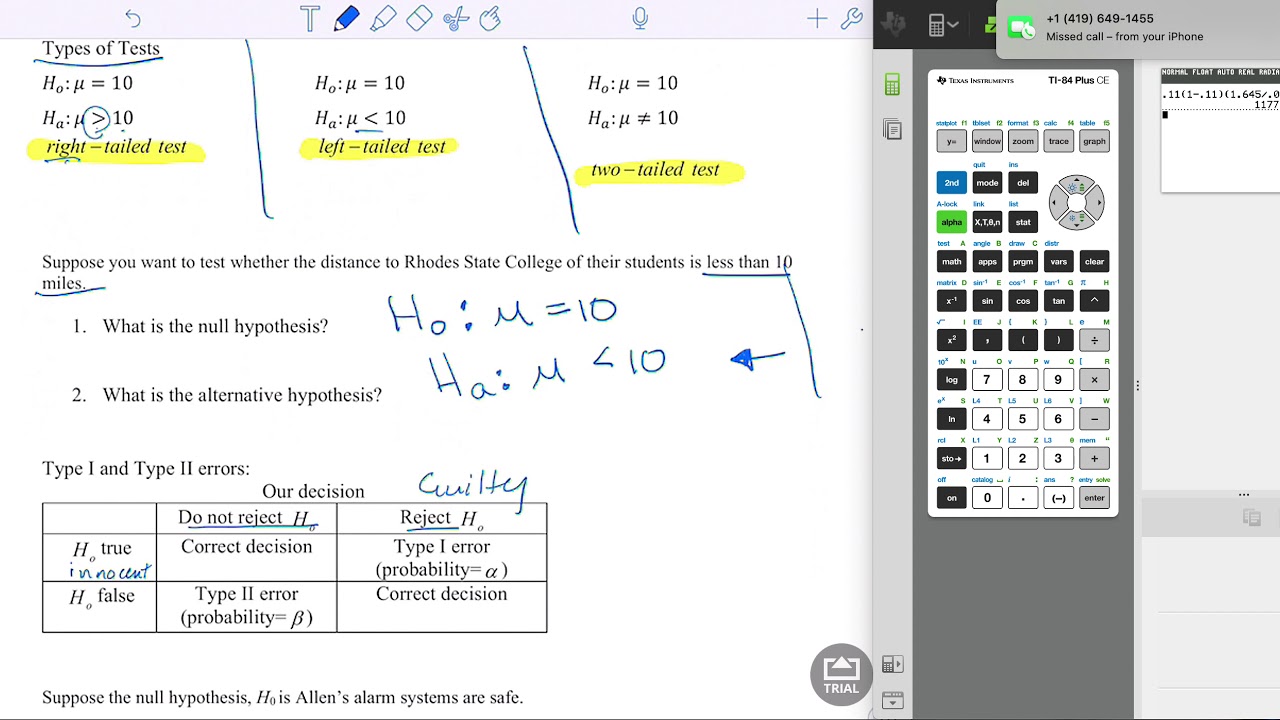 Types of Tests
H₀: μ = 10
Hₐ: μ > 10
right – tailed test
H₀: μ = 10
Hₐ: μ < 10
left – tailed test
H₀: μ = 10
Hₐ: μ ≠ 10
two – tailed test
Suppose you want to test whether the distance to Rhodes State College of their students is less than 10
miles.
1. What is the null hypothesis?
H₀: μ = 10
Hₐ: μ < 10
2. What is the alternative hypothesis?
Type I and Type II errors:
Our decision
Guilty
Do not reject H₀
Reject H₀
H₀ true
innocent
Correct decision
Type I error
(probability= α)
H₀ false
Type II error
(probability= β)
Correct decision
Suppose the null hypothesis, H0 is Allen's alarm systems are safe.
TRIAL
+1 (419) 649-1455
Missed call – from your iPhone
NORMAL FLOAT AUTO REAL RADIA
.11(1-.11)(1.645/.0
1177
TEXAS INSTRUMENTS TI-84 Plus CE
statplot f1 tblset f2 format f3 calc f4 table f5
y= window zoom trace graph
quit ins
2nd mode del
A-lock link list
alpha X,T,θ,n stat
test A angle B draw C distr
math apps prgm vars clear
matrix D sin⁻¹ E cos⁻¹ F tan⁻¹ G π H
x⁻¹ sin cos tan ^
√ I EE J { K } L e M
x² , ( ) ÷
10ˣ N u O v P w Q [ R
log 7 8 9 ×
eˣ S L4 T L5 U L6 V ] W
ln 4 5 6 −
rcl X L1 Y L2 Z L3 θ mem "
sto→ 1 2 3 +
off catalog i : ans ? entry solve
on 0 . (−) enter